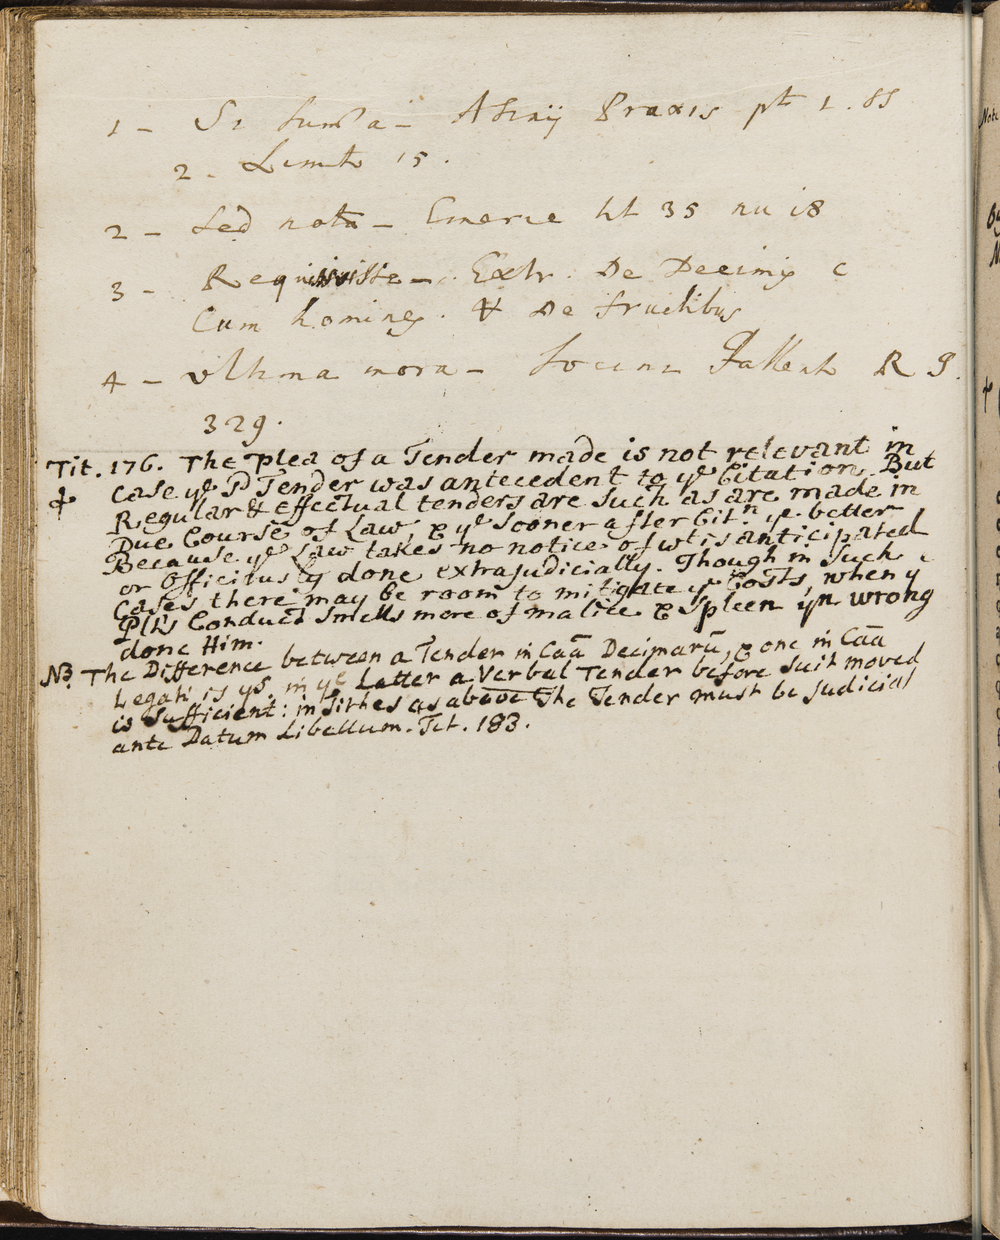 1 - Si - Praxis pt 1. 85
2. Limit 15.
2 - Sed nota - Emerie tit 35 nu 18
3 - Requisivisse - Extr. De Decimis c
Cum homines. & De fructibus
4 - ultima mora - Socini Fallent R 9.
329.
Tit. 176. The plea of a Tender made is not relevant in
Case ye sd Tender was antecedent to ye Citation. But
Regular & Effectual tenders are such as are made in
Due Course of Law, & ye sooner after Citn. ye better
Because ye Law takes no notice of wt is anticipated
or Officiously done extrajudicially. Though in such
Cases there may be room to mitigate ye Costs, when y
Plts Conduct smells more of malice & Spleen yn wrong
done Him.
NB The Difference between a Tender in Caā Decimarū, & one in Caā
Legati is ys. in ye Latter a Verbal Tender before suit moved
is sufficient: in Tithes as above The Tender must be judicial
ante Datum Libellum. Tit. 183.